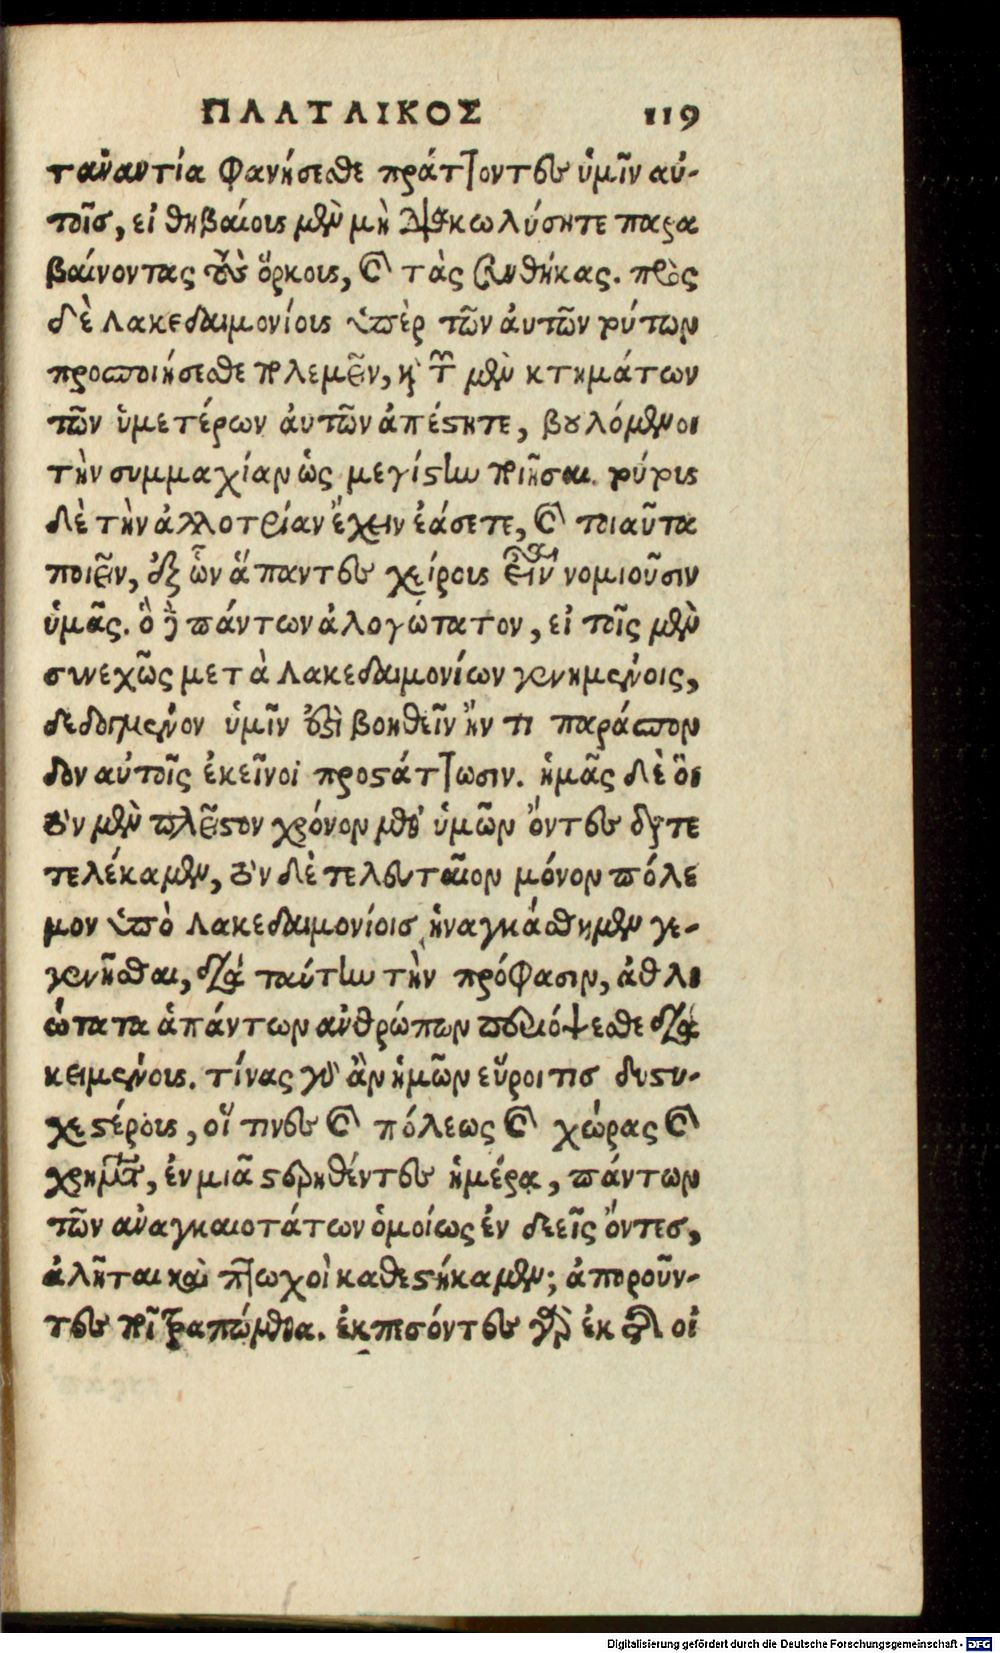 ΠΛΑΤΑΙΚΟΣ 119
τἀναντία φανήσεσθε πράττοντες ὑμῖν αὐ-
τοῖς, εἰ θηβαίους μὲν μὴ διακωλύσητε παρα
βαίνοντας τοὺς ὅρκους, καὶ τὰς συνθήκας. πρὸς
δὲ λακεδαιμονίους ὑπὲρ τῶν αὐτῶν τούτων
προσποιήσεσθε πολεμεῖν, καὶ τῶν μὲν κτημάτων
τῶν ὑμετέρων αὐτῶν ἀπέστητε, βουλόμενοι
τὴν συμμαχίαν ὡς μεγίστην ποιῆσαι. τούτους
δὲ τὴν ἀλλοτρίαν ἔχειν ἐάσετε, καὶ τοιαῦτα
ποιεῖν, ἐξ ὧν ἅπαντες χείρους εἶναι νομιοῦσιν
ὑμᾶς. ὃ δὲ πάντων ἀλογώτατον, εἰ τοῖς μὲν
συνεχῶς μετὰ λακεδαιμονίων γενημένοις,
δεδογμένον ὑμῖν ἐστὶ βοηθεῖν ἤν τι παράσπον
δον αὐτοῖς ἐκεῖνοι προστάττωσιν. ἡμᾶς δὲ οἳ
τὸν μὲν πλεῖστον χρόνον μεθ' ὑμῶν ὄντες δια τε
τελέκαμεν, τὸν δὲ τελευταῖον μόνον πόλε
μον ὑπὸ λακεδαιμονίοις ἠναγκάσθημεν γε-
γενῆσθαι, διὰ ταύτην τὴν πρόφασιν, ἀθλι
ώτατα ἁπάντων ἀνθρώπων περιόψεσθε δια
κειμένους. τίνας γὰρ ἂν ἡμῶν εὕροι τις δυστυ-
χεστέρους, οἵ τινες καὶ πόλεως καὶ χώρας καὶ
χρημάτων, ἐν μιᾷ στερηθέντες ἡμέρᾳ, πάντων
τῶν ἀναγκαιοτάτων ὁμοίως ἐν δεεῖς ὄντες,
ἀλῆται καὶ πτωχοὶ καθεστήκαμεν; ἀποροῦν-
τες ποῖ τραπώμεθα. ἐκπεσόντες γὰρ ἐκ οἱ
Digitalisierung gefördert durch die Deutsche Forschungsgemeinschaft - DFG